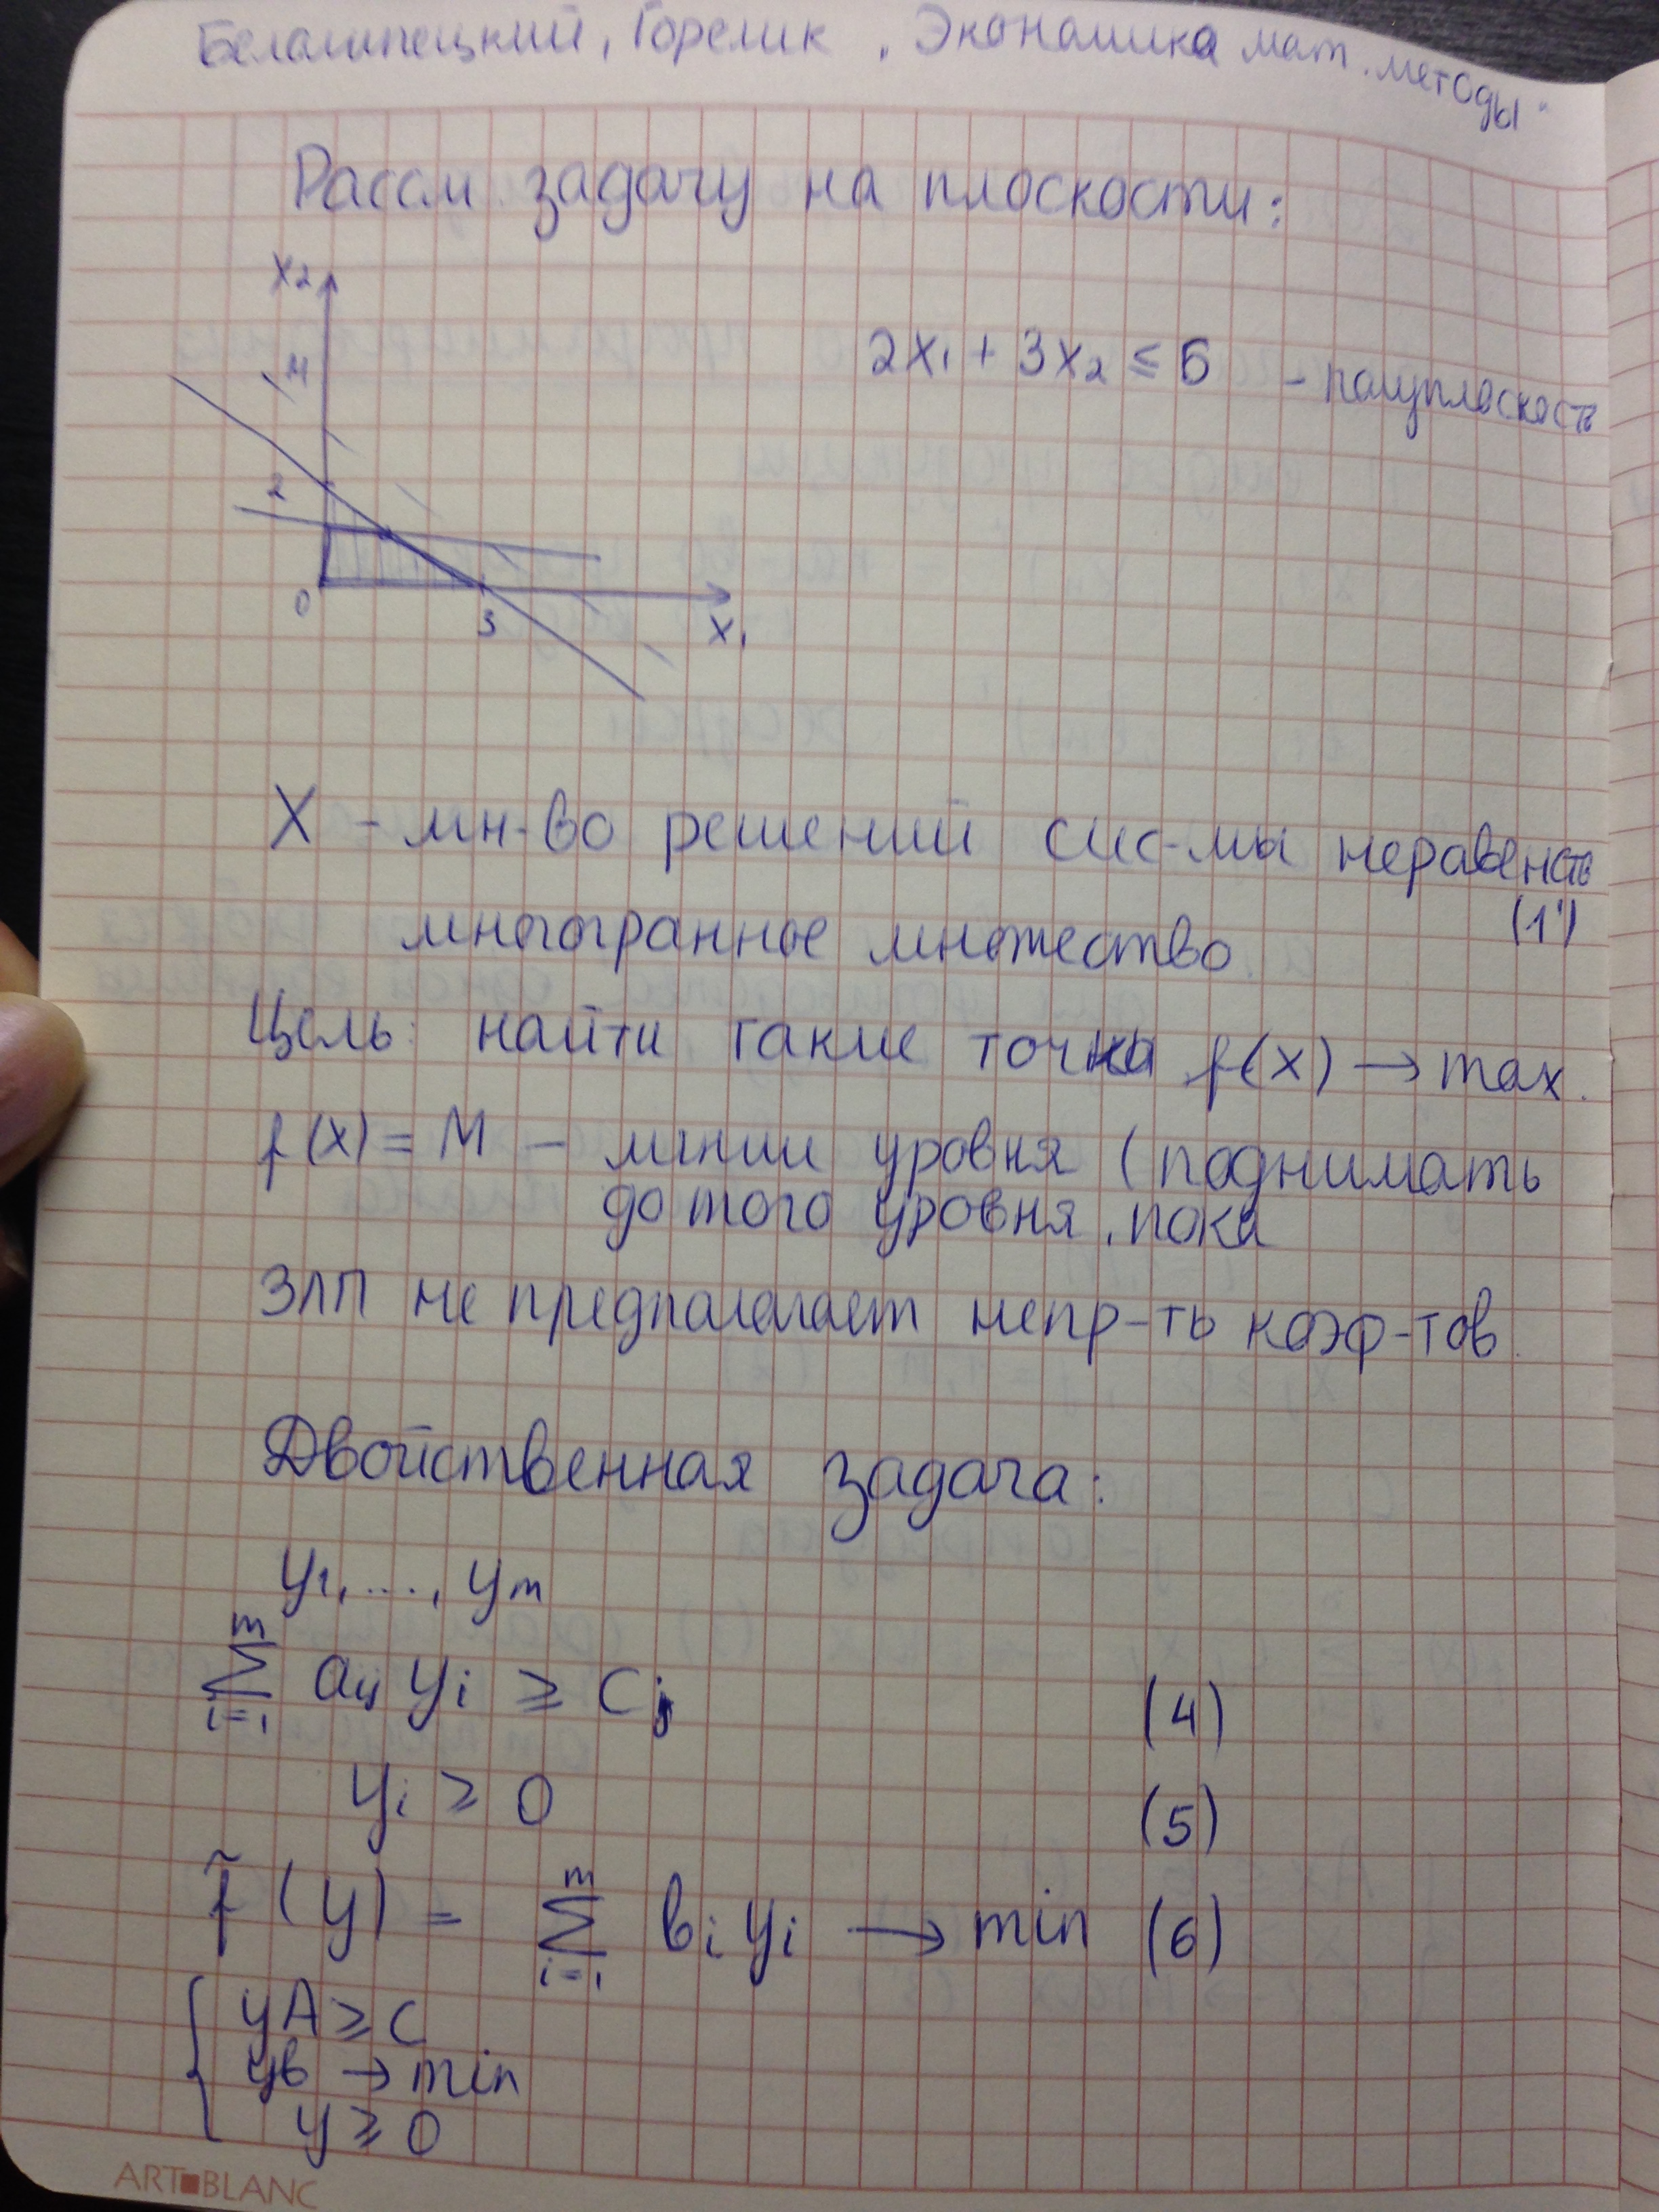 Белолипецкий, Горелик, Экономика мат. методы"
Рассм задачу на плоскости:
x₂
M
2x₁ + 3x₂ ≤ 6 - полуплоскость
2
0
3
x₁
X - мн-во решений сис-мы неравенств
(1')
многогранное множество
Цель: найти такие точки f(x) → max.
f(x) = M - линии уровня (поднимать
до того уровня, пока
ЗЛП не предполагает непр-ть коэф-тов.
Двойственная задача:
y₁, ..., yₘ
m
∑ aᵢⱼ yᵢ ≥ cⱼ (4)
i=1
yᵢ ≥ 0 (5)
m
f̃(y) = ∑ вᵢ yᵢ → min (6)
i=1
yA ≥ c
yв → min
y ≥ 0
ART BLANC